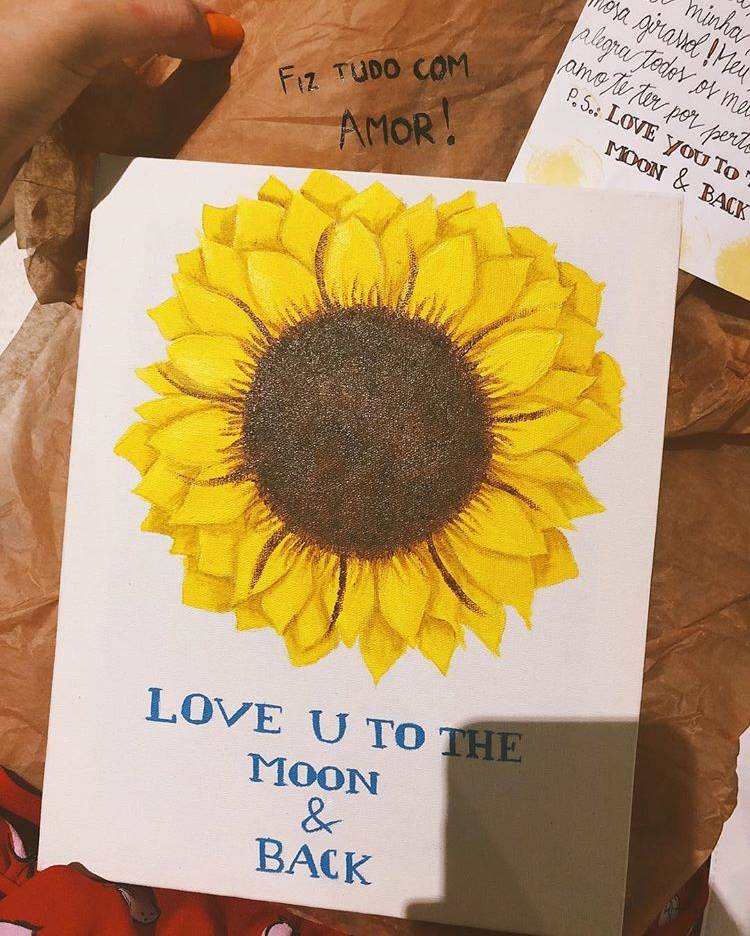 FIZ TUDO COM
AMOR!
minha
girassol! Meu
alegra todos os
amo te ter por perto
P.S.: LOVE YOU TO
MOON & BACK
LOVE U TO THE
MOON
&
BACK